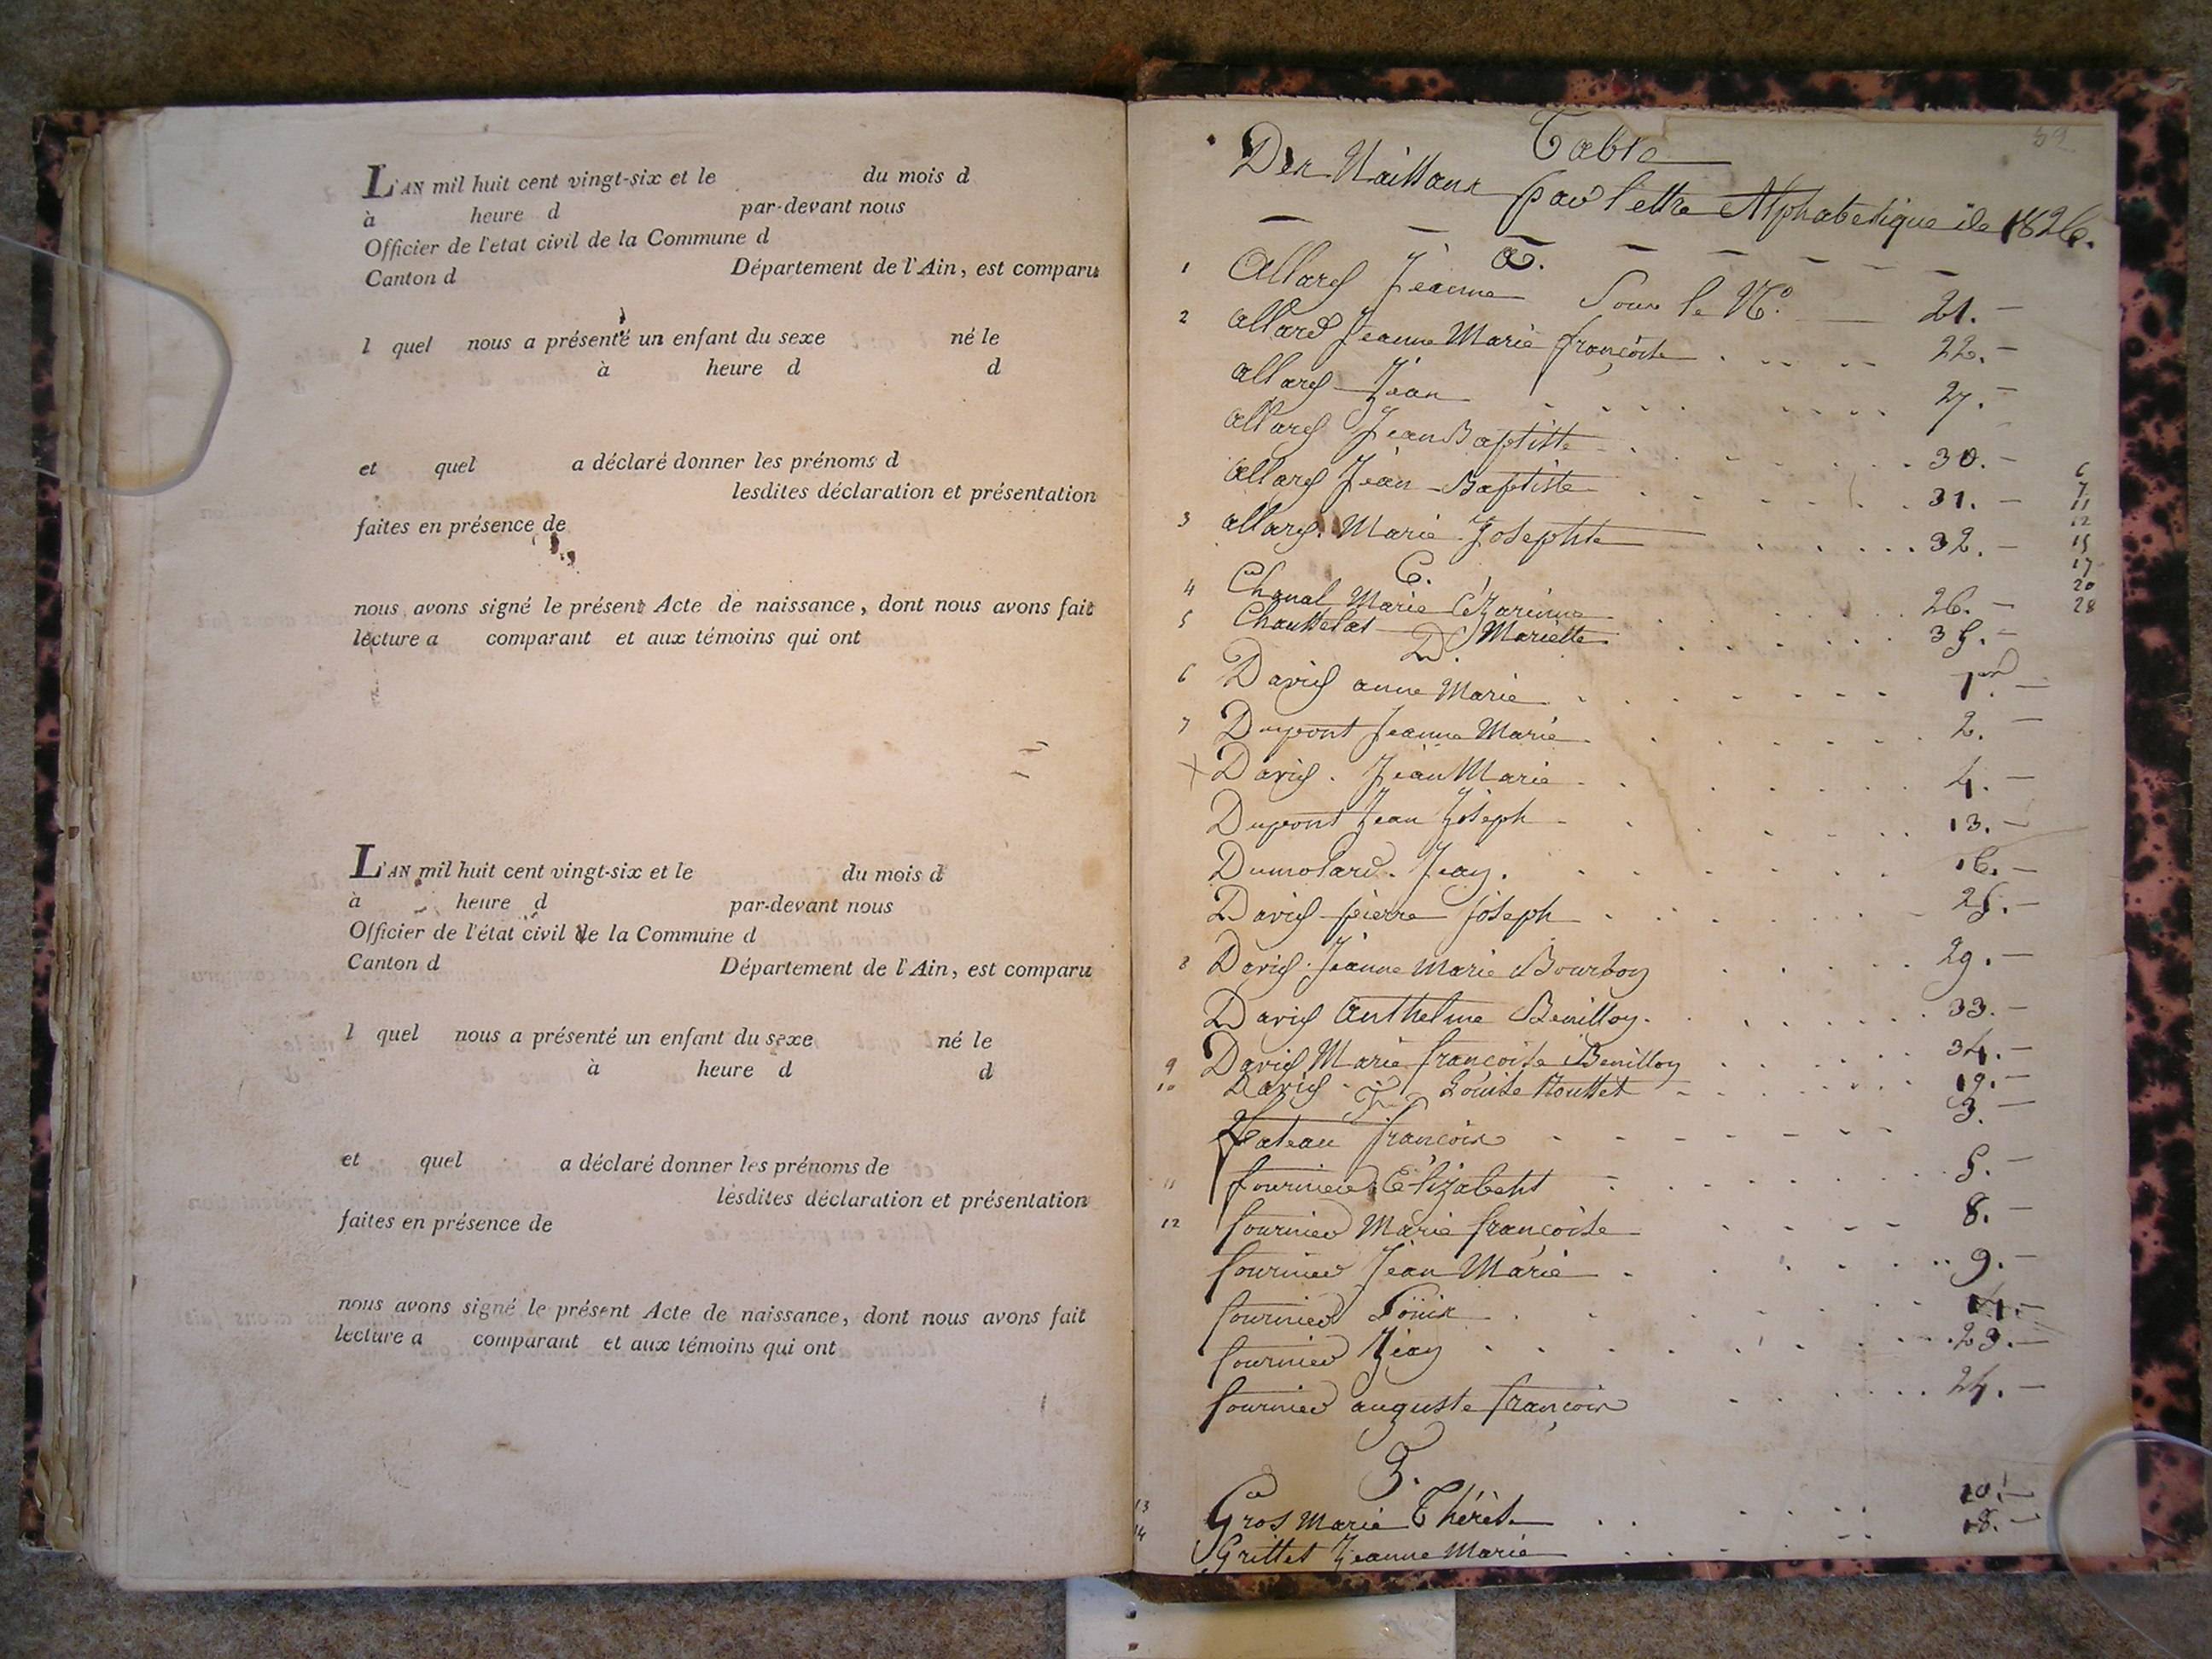 L'AN mil huit cent vingt-six et le du mois d
à heure d par-devant nous
Officier de l'état civil de la Commune d
Canton d Département de l'Ain, est comparu
l quel nous a présenté un enfant du sexe né le
à heure d d
et quel a déclaré donner les prénoms d
lesdites déclaration et présentation
faites en présence de
nous avons signé le présent Acte de naissance, dont nous avons fait
lecture a comparant et aux témoins qui ont
L'AN mil huit cent vingt-six et le du mois d
à heure d par-devant nous
Officier de l'état civil de la Commune d
Canton d Département de l'Ain, est comparu
l quel nous a présenté un enfant du sexe né le
à heure d d
et quel a déclaré donner les prénoms de
lesdites déclaration et présentation
faites en présence de
nous avons signé le présent Acte de naissance, dont nous avons fait
lecture a comparant et aux témoins qui ont
Table
Des Naissans par lettre Alphabetique de 1826.
a.
1 Allard Jeanne Sous le N° 21.
2 allard Jeanne Marie françoise 22.
allard Jean 27.
allard Jean Baptiste 30.
allard Jean Baptiste 31.
3 allard Marie Josephte 32.
C.
4 Chanal Marie 26.
5 Mariette 35.
D.
6 David anne Marie 1er
7 Dupont Jeanne Marie 2.
x David Jean Marie 4.
Dupont Jean Joseph 13.
Dumolard Jean. 16.
David pierre Joseph 25.
8 David Jeanne Marie Bourbon 29.
David Anthelme Benillon. 33.
9 David Marie françoise Benillon 34.
10 David Louise Mouttet 19.
F.
fateau françois 3.
11 fournier Elizabeht 5.
12 fournier Marie françoise 8.
fournier Jean Marie 9.
fournier Louis 14.
fournier Jean 23.
fournier auguste françois 24.
G.
13 Gros Marie Thérèse 10.
14 Grittet Jeanne Marie 18.
6
7
11
12
15
17
20
28